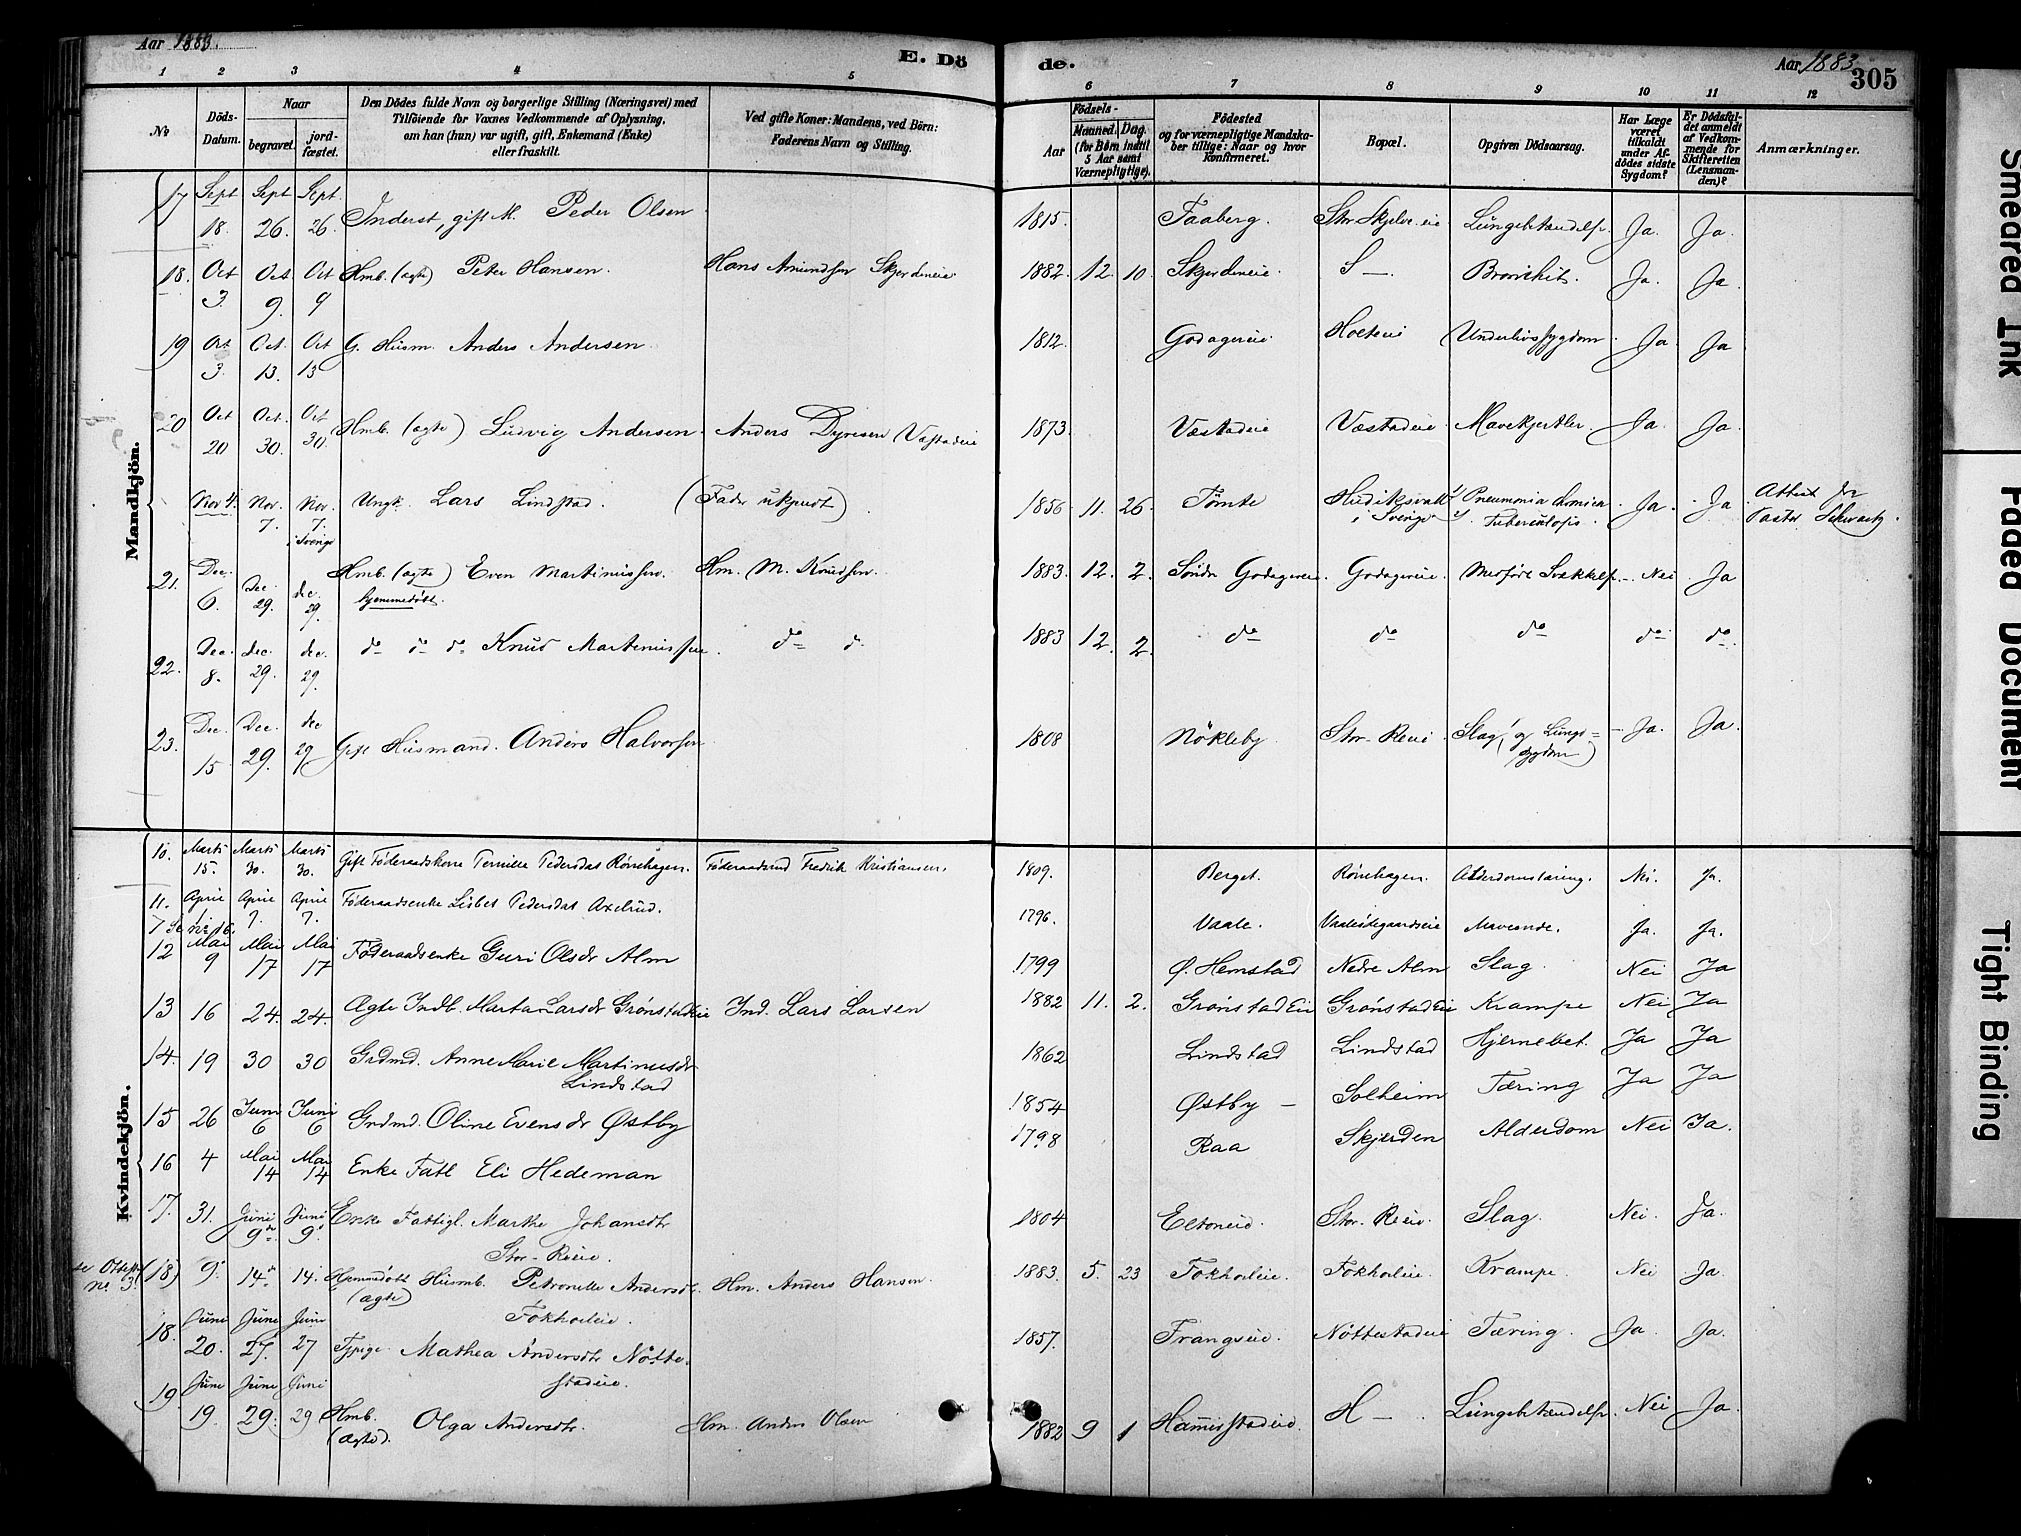 Aar 1883.
E. Dö
de.
Aar 1883.
305
1 2 3 4 5 6 7 8 9 10 11 12
No
Döds-Datum.
Naar
begravet.
jord-fæstet.
Den Dödes fulde Navn og borgerlige Stilling (Næringsvei) med
Tilföiende for Voxnes Vedkommende af Oplysning,
om han (hun) var ugift, gift, Enkemand (Enke)
eller fraskilt.
Ved gifte Koner: Mandens, ved Börn:
Faderens Navn og Stilling.
Födsels-
Aar
Maaned. Dag.
(for Börn indtil
5 Aar samt
Værnepligtige).
Födested
og for værnepligtige Mandska-
ber tillige: Naar og hvor
konfirmeret.
Bopæl.
Opgiven Dödsaarsag.
Har Læge
været
tilkaldt
under Af-
dödes sidste
Sygdom?
Er Dödsfal-
det anmeldt
af Vedkom-
mende for
Skifteretten
(Lensman-
den)?
Anmærkninger.
Mandkjön.
17 Sept 18. Sept 26. Sept 26. Inderst, gift M. Peder Olsen 1815. Faaberg. Stor Skjelve eie Lungebetændelse. Ja. Ja.
18. Oct 3. Oct 9. Oct 9 Hmb. (ægte) Peter Hansen. Hans Amundsen Skjerdeneie 1882. 12. 10. Skjerdeneie. S — Bronchit. Ja. Ja.
19 Oct 3. Oct. 13. Oct 13 G. Husm. Anders Andersen 1812. Godagereie. Holteeie Underlivssygdom. Ja Ja
20 Oct 20 Oct. 30. Oct 30. Hmb. (ægte) Ludvig Andersen. Anders Dyresen Væstadeie 1873. Væstadeie Væstadeie. Mavekjertler. Ja. Ja.
Nov 4. Nov. 7. Nov. 7. i Sverige Ungk. Lars Lindstad. (Fader ukjendt) 1856 11. 26. Tömte Hudiksvall i Sverige Pneumonia chronica Tuberculosis. Ja. Ja Attest fra Pastor Schwartz.
21. Dec. 6. Dec 29. dec. 29. Hmb. (ægte) Even Martinussen. hjemmedöbt. Hm. M. Knudsen. 1883. 12. 2. Söndr Godagereie. Godagereie. Medfödt Svækkelse. Nei Ja
22. Dec. 8. dec. 29. dec. 29. do do do Knud Martinussen. do do 1883 12. 2. do do do do do
23. Dec. 15 Dec. 29. dec 29 Gift Husmand. Anders Halvorsen 1808 Nökleby Stor-Reeie. Slag, (og Lunge-sygdom) Ja. Ja.
Kvindekjön.
10. Marts 15. Marts 30. Marts 30. Gift Föderaadskone Pernille Pedersdat Rönehagen. Föderaadsmd Fredrik Kristiansen. 1809. Berget. Rönehagen. Alderdomstæring. Nei. Ja.
11. April April 7. April 7. Föderaadsenke Lisbet Pedersdat Axelrud. 1796. Vaale. Vaaleödegaardseie Maveonde. Ja. Ja.
12 Mai 9 Mai 17 Mai 17 Föderaadsenke Guri Olsdr Alm 1799 Ø. Hemstad Nedre Alm Slag. Nei Ja
13 16 24. 24. Ægte Indb. Marta Larsdr Grønstadeie Ind. Lars Larsen 1882 11. 2. Grønstadeie Grønstadeie Krampe Nei Ja
14. 19 30 30 Grdmd. Anne Marie Martinusdr Lindstad 1862 Lindstad Lindstad Hjernebet. Ja Ja
15 26 Juni 6 Juni 6 Grdmd. Oline Evensdr Østby 1854 Østby — Solheim Tæring Ja Ja
16 4 Mai 14 Mai 14 Enke Fatl Eli Hedeman 1798 Raa Skjerden Alderdom Nei Ja.
17. 31. Juni 9de Juni 9. Enke Fattigl. Marthe Johansdtr Stor-Reeie. 1804 Eltoneie. Stor-Reeie. Slag. Nei. Ja.
(18) 9. 14de 14. Hjemmedöbt Husmb. (ægte) Petronelle Andersdt. Fokholeie. Hm. Anders Hansen. 1883. 5. 23 Fokholeie. Fokholeie. Krampe. Nei Ja.
no. 3.
18. Juni 20. Juni 27. Juni 27 Tjpige. Mathea Andersdtr Nötte-stadeie. 1857. Frangseie. Nöttestadeie Tæring. Ja. Ja.
19. Juni 19. Juni 29. Juni 29 Hmb. (ægte). Olga Andersdtr. Hm. Anders Olsen 1882 9 1 Hammerstadeie. H — . Lungebetændelse. Nei Ja.
Smeared Ink
Faded Document
Tight Binding